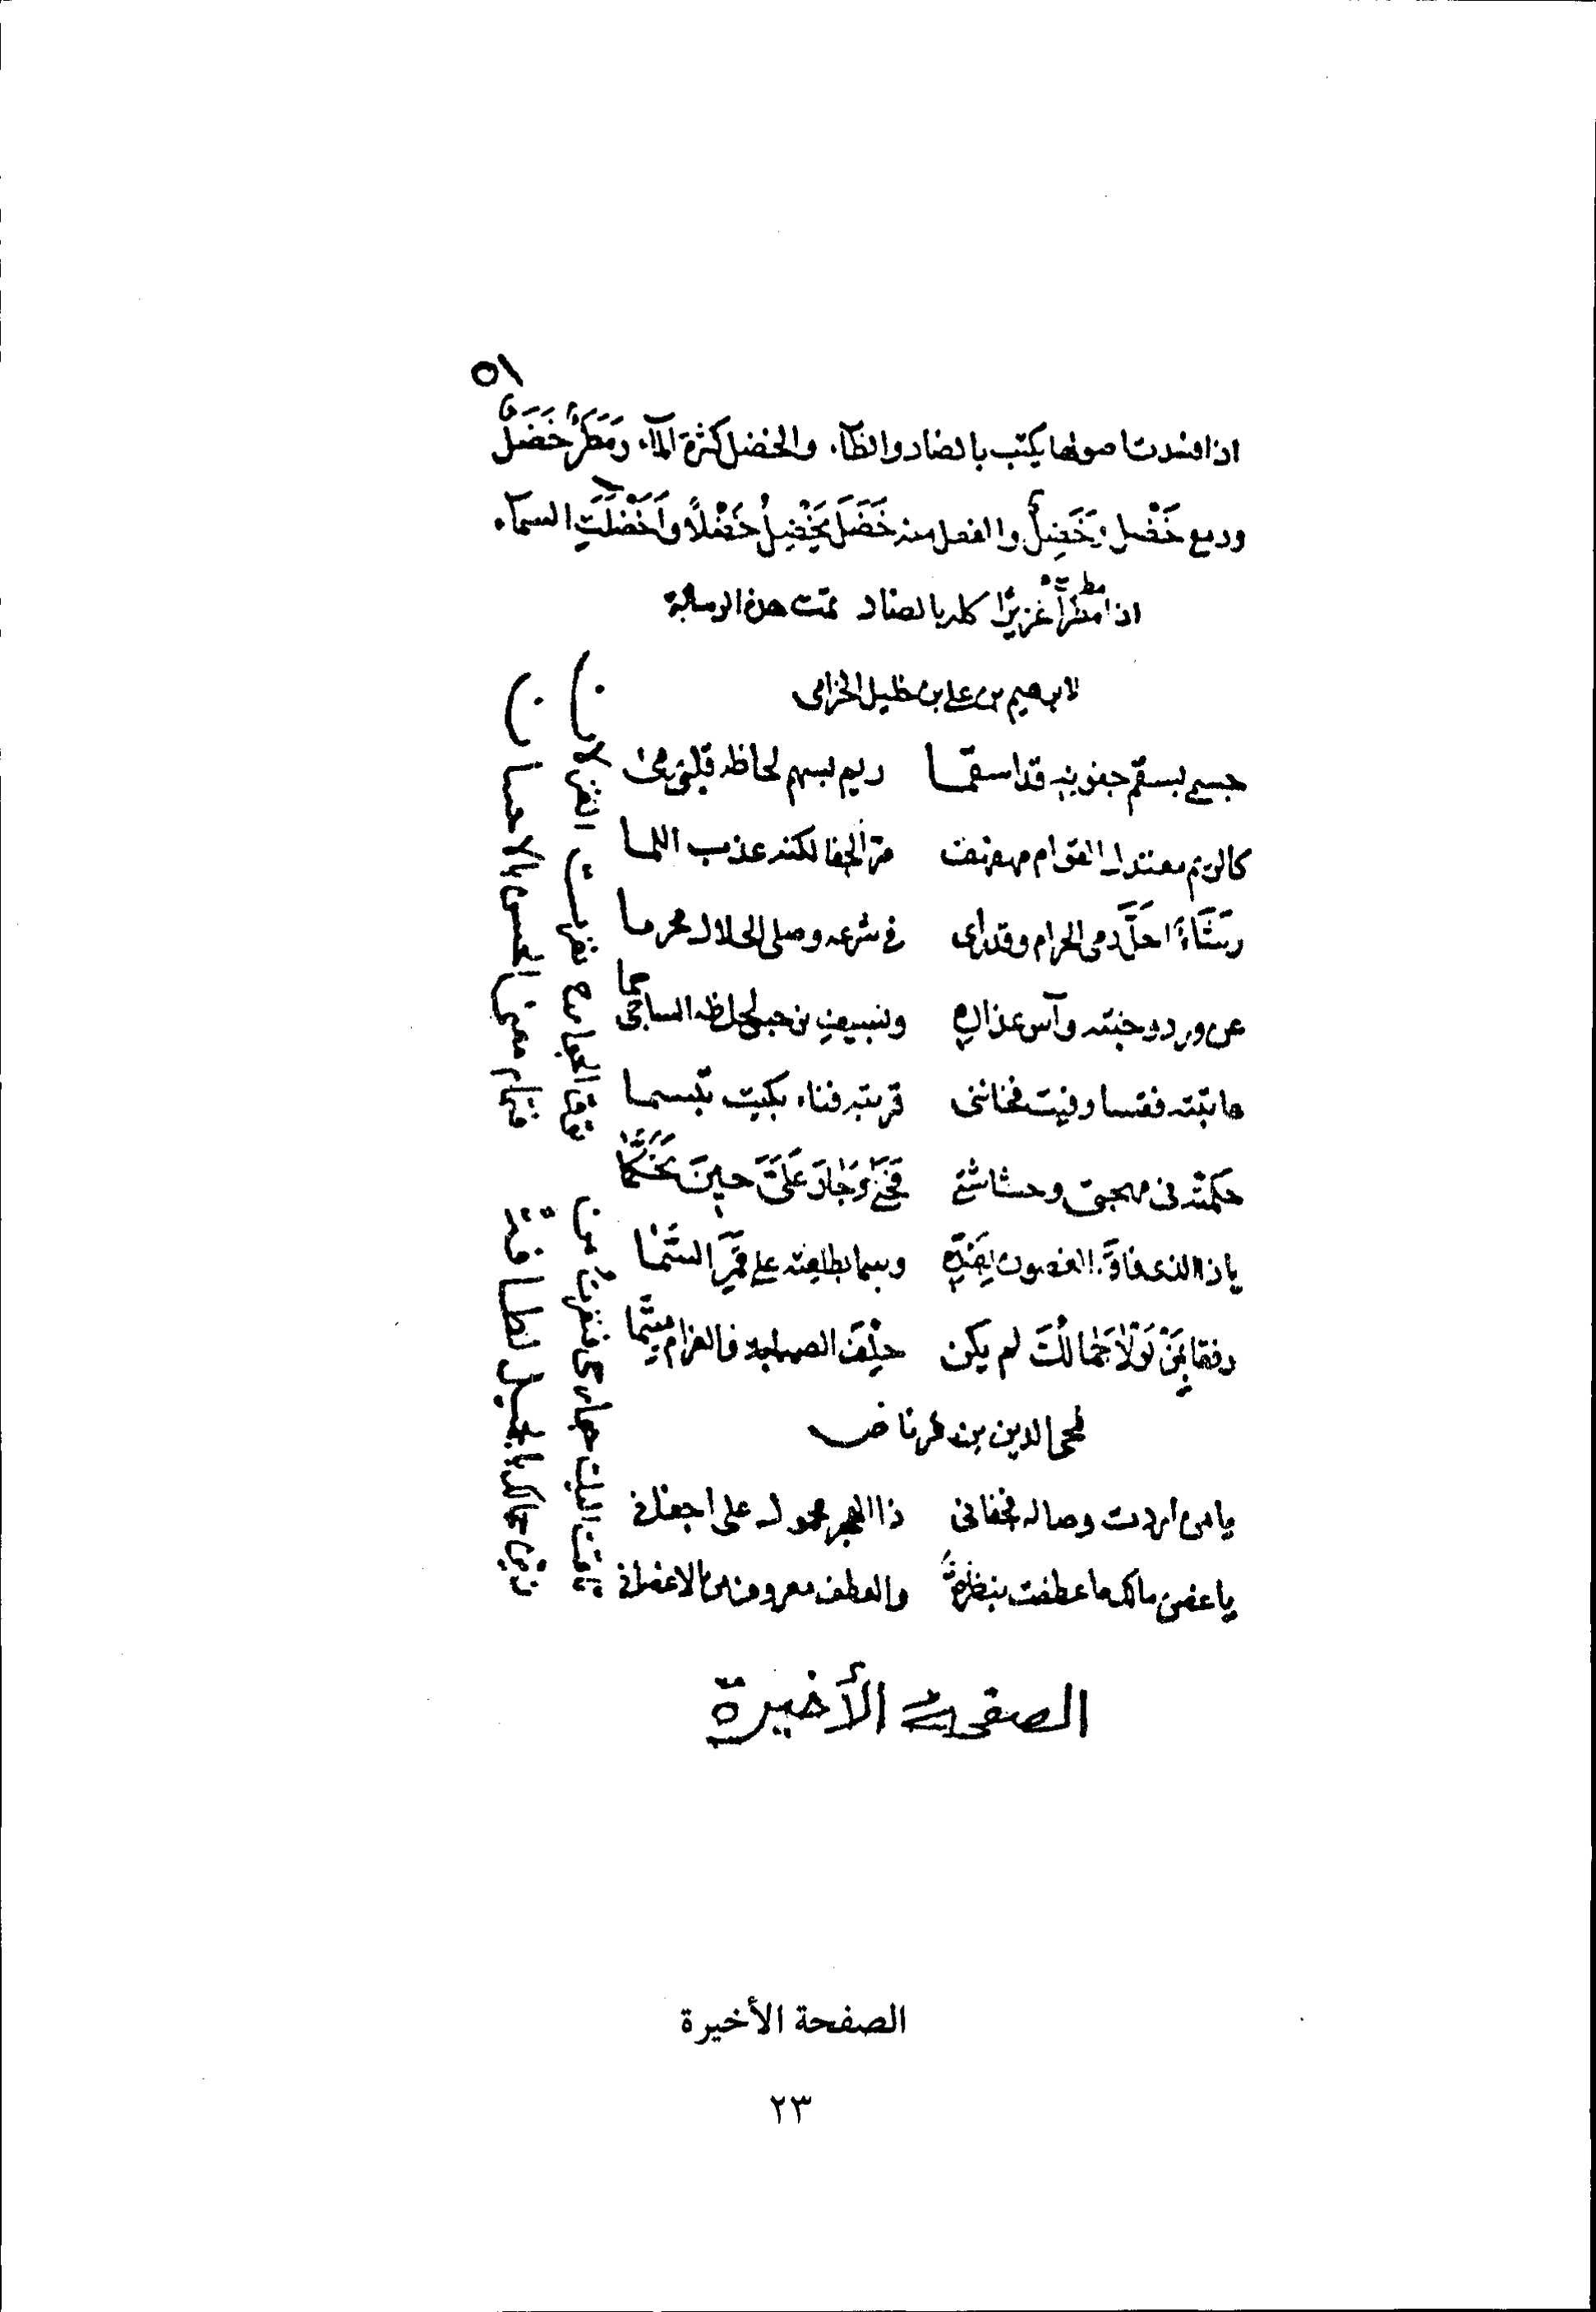 ١٥
اذا اشتدت صوتها يكتب بالضاد والظآء والخضل كثرة المآء ومَطَرٌ خَضَلٌ
ودمع خَضْل وخَضِلٌ والفعل منه خَضَلَ يَخْضِلُ خَضْلاً وأَخْضَلَتِ السمآء
اذا مطرًا غزيرًا كله بالضاد تمت هذه الرسالة
لابرهيم بن علي بن خليل الحرامى
جسمي بسقم جفونه قد اسقما ريم بسهم لحاظه قلبى رمى
كالريم معتدل القوام مهفهف مر الجفا لكنه عذب اللما
رشَاءٌ احَلَّ دمى الحرام وقد راى فى شرعه وصلى الحلال محرما
عن ورد وجنته وآس عذاره وبسيف نرجس لحظه الساجى حما
عاتبته فقسا وفيت فخاننى قربته فناء بكيت تبسما
حكمته فى مهجتى وحشاشتى فَجَنَى وَجَارَ عَلَىَّ حينَ تَحَكَّمَا
ياذا الذى فاقَ الغصون بِقَدِّهِ وسما بطلعته على قَمَرِ السَّمَا
رفقا بِمَنْ لَوْلاَ جَمَالُكَ لم يكن حِلْفَ الصبابة فالغرام متيَّما
لمحى الدين بن قرناص
يامن اردت وصاله فجفانى ذا الهجر محمول على اجفانى
ياغصن مالك ما عطفت بنظرةٍ والعطف معروف من الاغصان
تاقت اليك جيادى فنفرتُ من
زين جمالك بالجميل لطافةً
الصفحة الأخيرة
الصفحة الأخيرة
٢٣